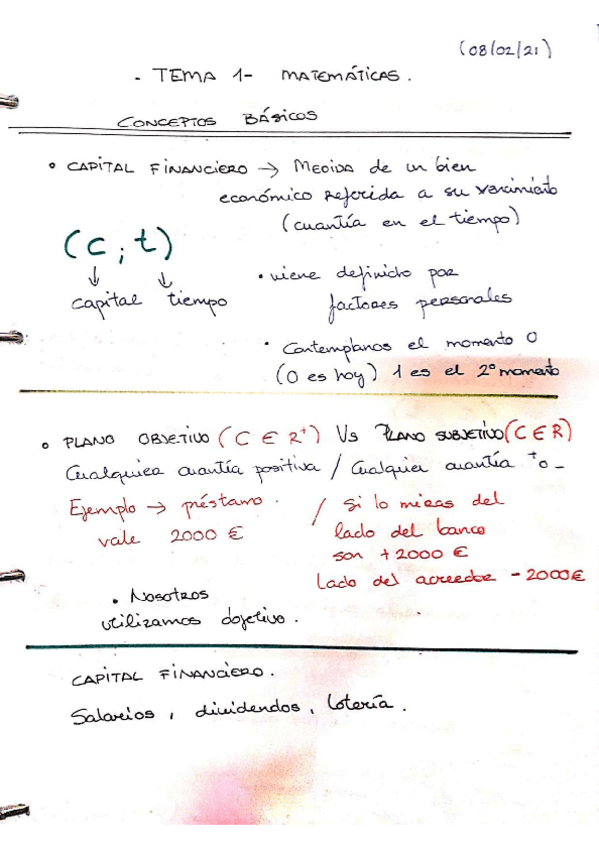 (08/02/21)
- TEMA 1- MATEMÁTICAS.
CONCEPTOS BÁSICOS
• CAPITAL FINANCIERO → MEDIDA de un bien
económico referida a su vencimiento
(cuantía en el tiempo)
(C ; t)
↓ ↓
capital tiempo
• viene definido por
factores personales
• Contemplanos el momento 0
(0 es hoy) 1 es el 2º momento
• PLANO OBJETIVO (C ∈ R⁺) Vs PLANO SUBJETIVO (C ∈ R)
Cualquier cuantía positiva / Cualquier cuantía + o -
Ejemplo → préstamo.
vale 2000 €
/ Si lo miras del
lado del banco
son +2000 €
Lado del acreedor -2000€
• Nosotros
utilizamos objetivo.
CAPITAL FINANCIERO.
Salarios, dividendos, lotería.